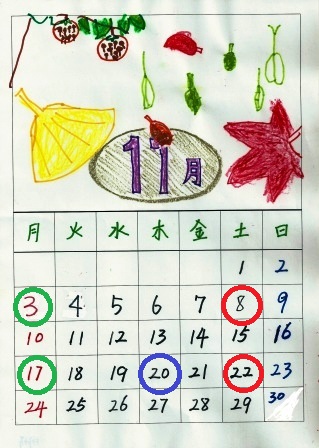 11月
月 火 水 木 金 土 日
1 2
3 4 5 6 7 8 9
10 11 12 13 14 15 16
17 18 19 20 21 22 23
24 25 26 27 28 29 30